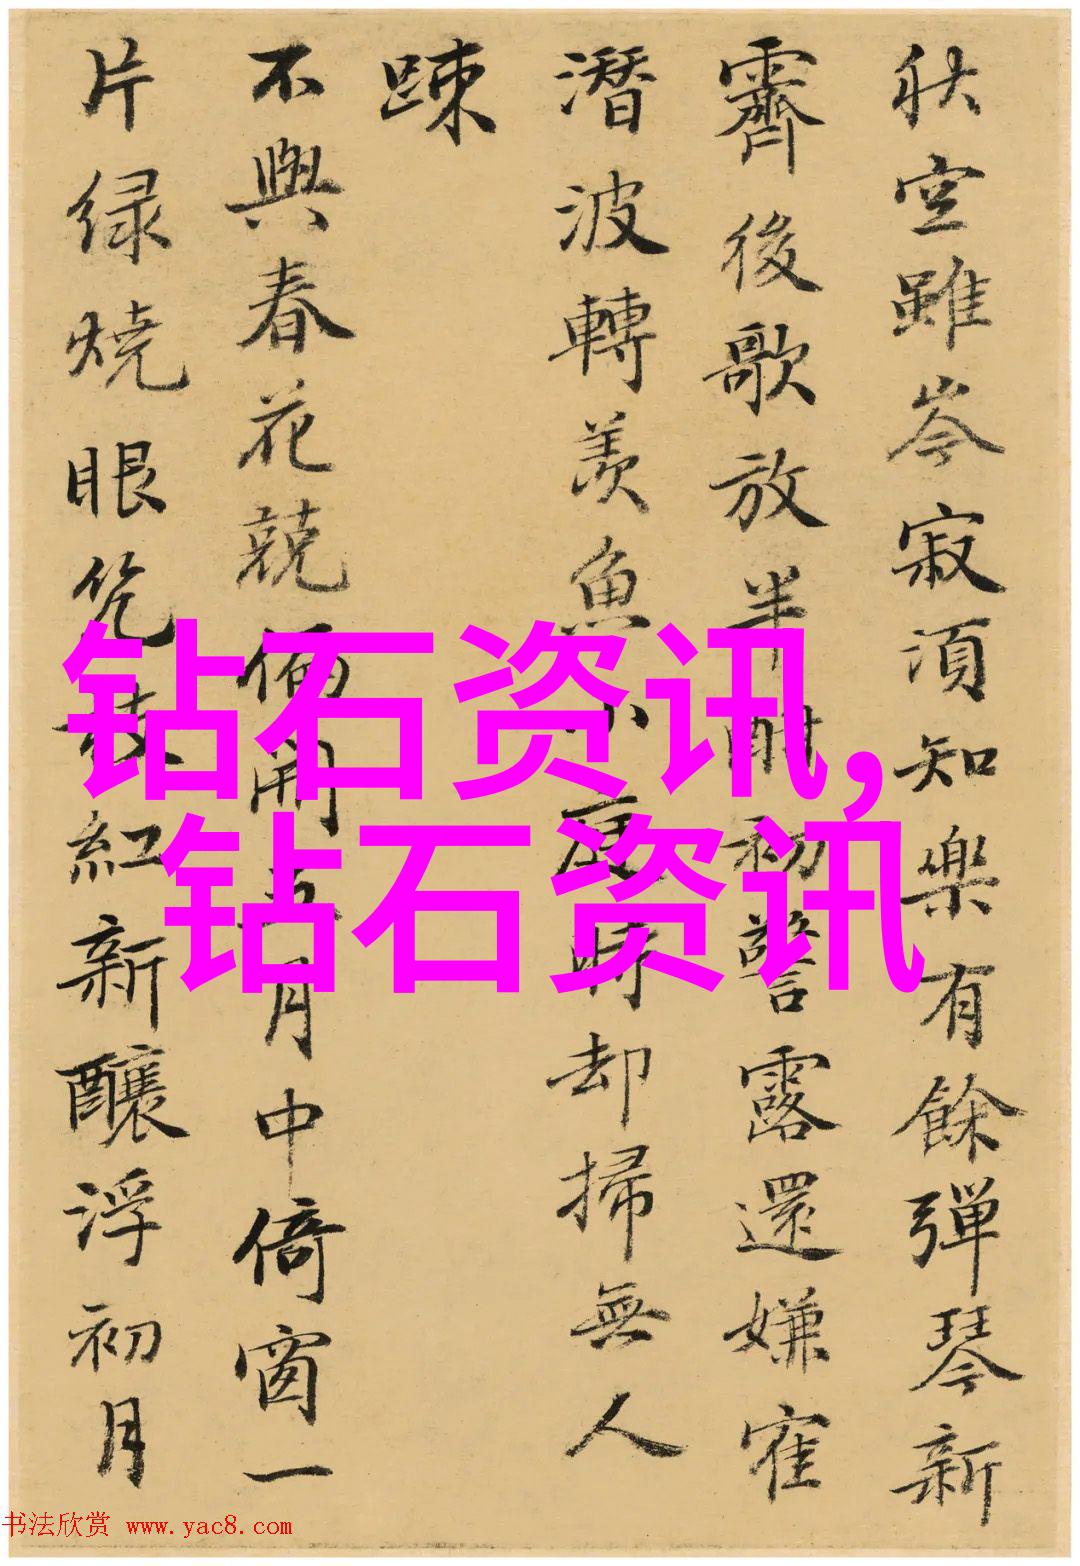 秋空雖岑寂須知樂有餘彈琴新
霽後歌放半酣初警露還嫌寉
潛波轉羡魚小庭時却掃無人
踈
不與春花競俪開五月中倚窗一
片绿燒眼笕枝紅新釀浮初月
钻石资讯,
钻石资讯
书法欣赏 www.yac8.com